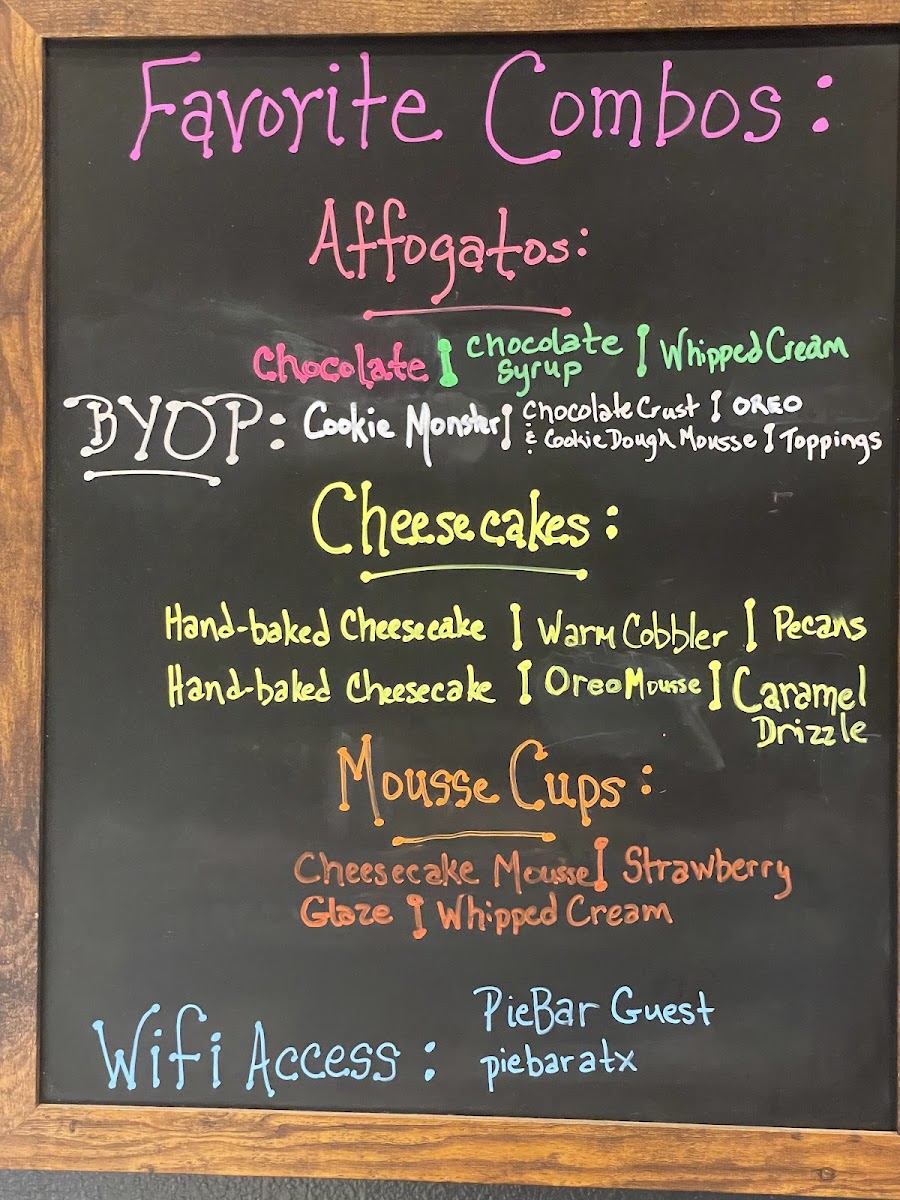 Favorite Combos:
Affogatos:
Chocolate | chocolate syrup | Whipped Cream
BYOP: Cookie Monster | Chocolate Crust | OREO
& Cookie Dough Mousse | Toppings
Cheesecakes:
Hand-baked Cheesecake | Warm Cobbler | Pecans
Hand-baked Cheesecake | Oreo Mousse | Caramel
Drizzle
Mousse Cups:
Cheesecake Mousse | Strawberry
Glaze | Whipped Cream
Wifi Access: PieBar Guest
piebaratx